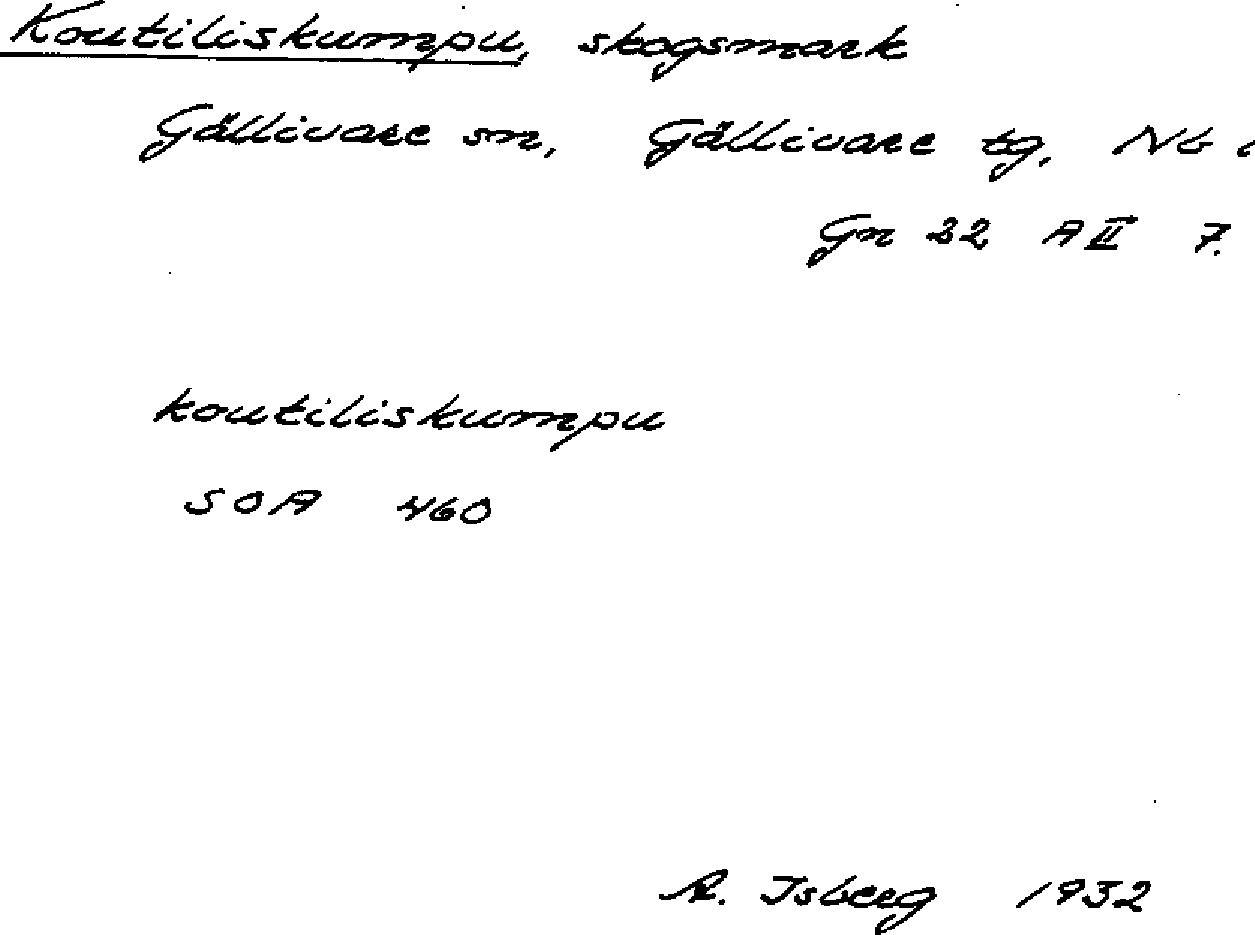 Koutiliskumpu, skogsmark
Gällivare sn, Gällivare tg, Nb
Gn 22 A II 7.
koutiliskumpu
SOA 460
A. Isberg 1932